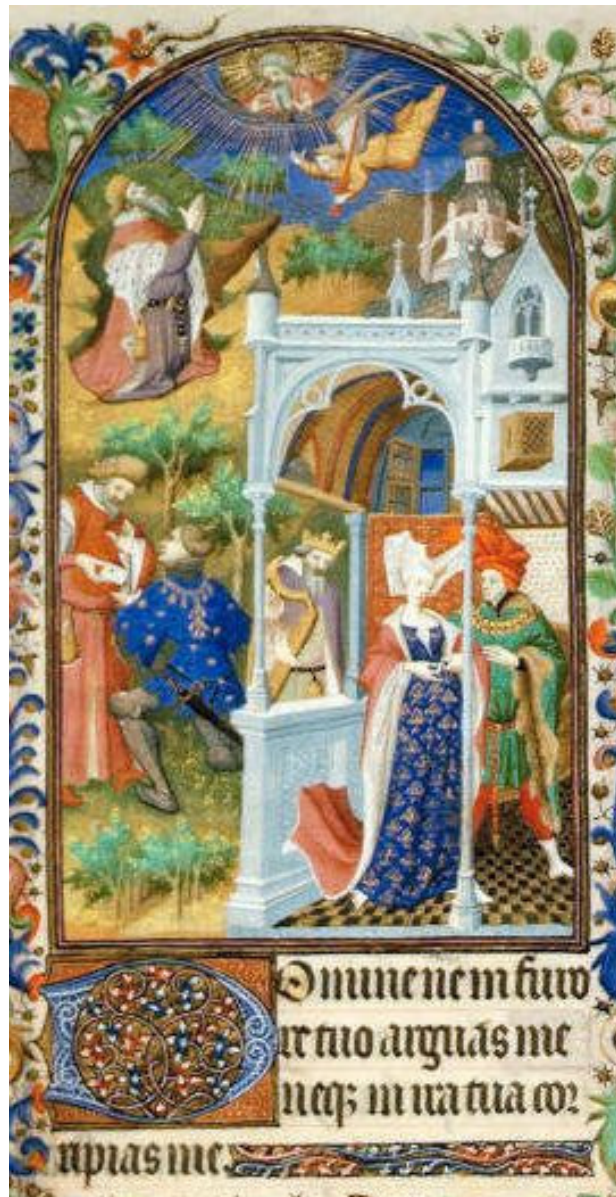 Domine ne in furo
re tuo arguas me
neqz in ira tua cor
ripias me.